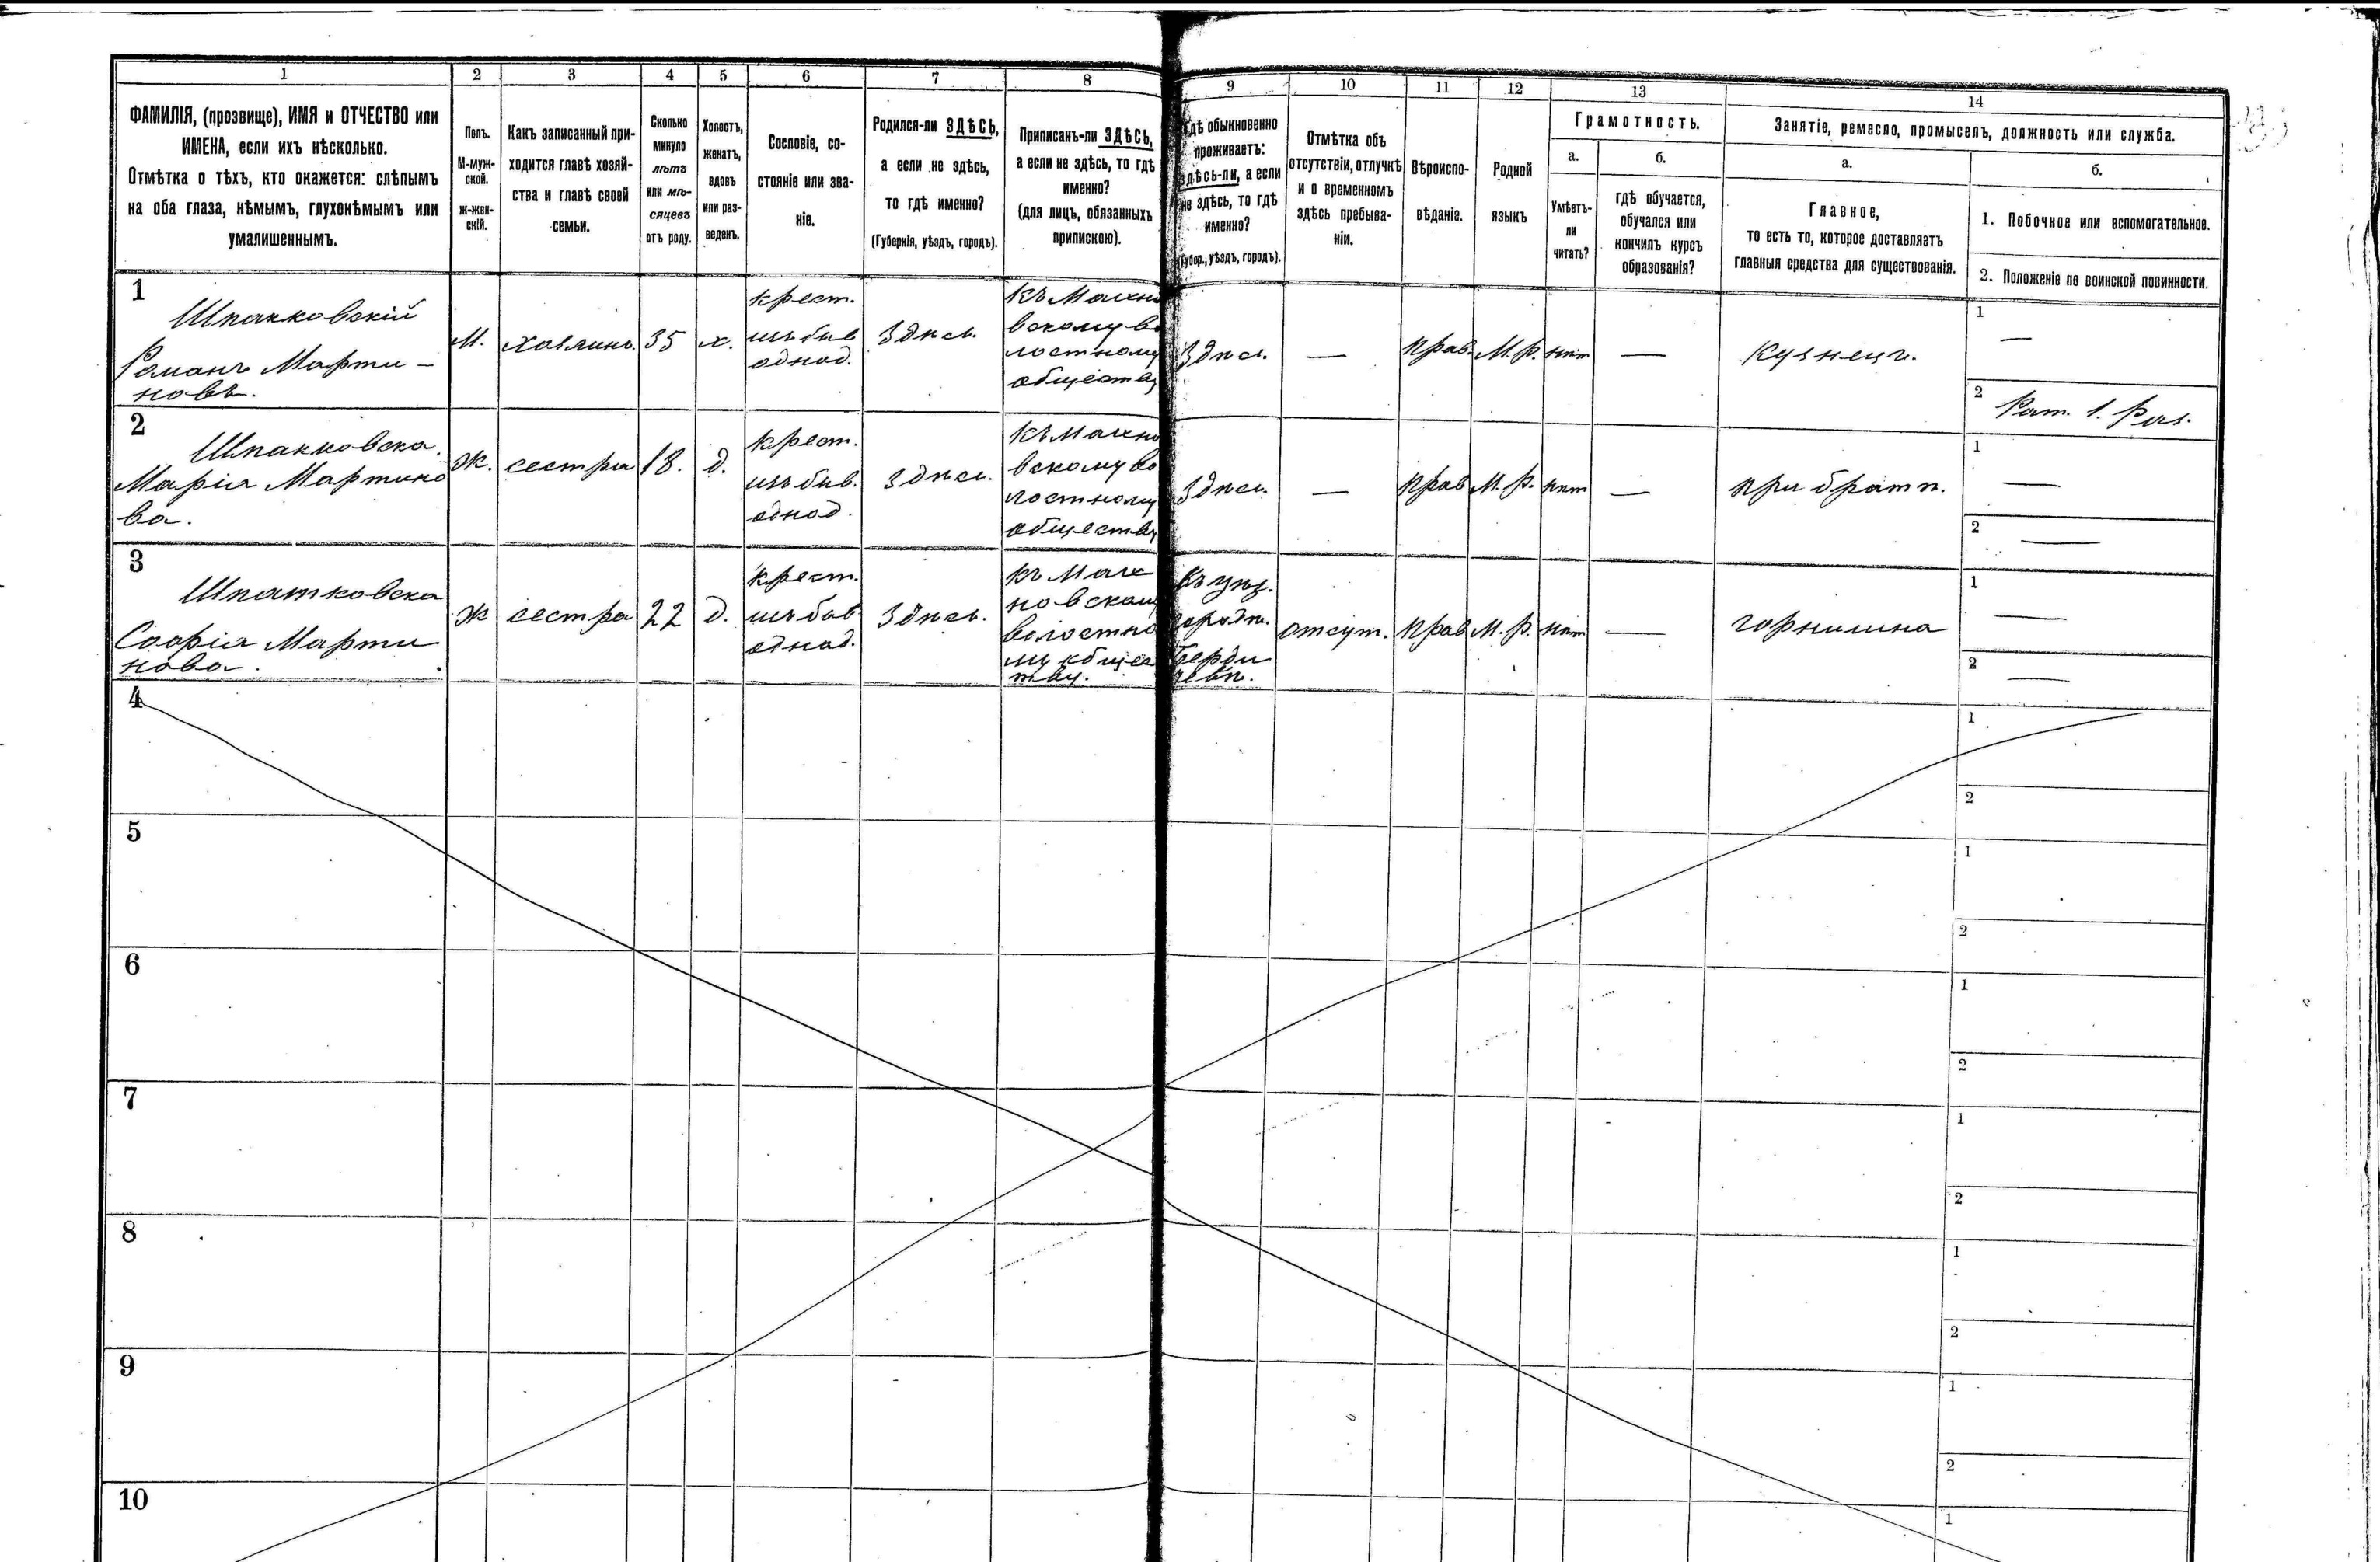 1 2 3 4 5 6 7 8 9 10 11 12 13 14
ФАМИЛІЯ, (прозвище), ИМЯ и ОТЧЕСТВО или
ИМЕНА, если ихъ нѣсколько.
Отмѣтка о тѣхъ, кто окажется: слѣпымъ
на оба глаза, нѣмымъ, глухонѣмымъ или
умалишеннымъ.
Полъ.
М-муж-
ской.
Ж-жен-
скій.
Какъ записанный при-
ходится главѣ хозяй-
ства и главѣ своей
семьи.
Сколько
минуло
лѣтъ
или мѣ-
сяцевъ
отъ роду.
Холостъ,
женатъ,
вдовъ
или раз-
веденъ.
Сословіе, со-
стояніе или зва-
ніе.
Родился-ли ЗДѢСЬ,
а если не здѣсь,
то гдѣ именно?
(Губернія, уѣздъ, городъ).
Приписанъ-ли ЗДѢСЬ,
а если не здѣсь, то гдѣ
именно?
(для лицъ, обязанныхъ
припискою).
Гдѣ обыкновенно
проживаетъ:
здѣсь-ли, а если
не здѣсь, то гдѣ
именно?
(Губер., уѣздъ, городъ).
Отмѣтка объ
отсутствіи, отлучкѣ
и о временномъ
здѣсь пребыва-
ніи.
Вѣроиспо-
вѣданіе.
Родной
языкъ
Грамотность.
а.
Умѣетъ-
ли
читать?
б.
гдѣ обучается,
обучался или
кончилъ курсъ
образованія?
Занятіе, ремесло, промыселъ, должность или служба.
а.
Главное,
то есть то, которое доставляетъ
главныя средства для существованія.
б.
1. Побочное или вспомогательное.
2. Положеніе по воинской повинности.
1
Шпакковскій
Романъ Марти-
новъ.
М.
хозяинъ
35
х.
крест.
изъ быв
однод.
Здѣсь.
Къ Махно
вскому во
лостному
обществу
Здѣсь.
—
Прав.
М. Р.
нѣт
—
Кузнецъ.
1
—
2
Рат. 1. Раз.
2
Шпакковска.
Марія Мартино
ва.
Ж.
сестра
18.
д.
крест.
изъ быв.
однод.
Здѣсь.
Къ Махно
вскому во
лостному
обществу
Здѣсь.
—
Прав
М. Р.
нѣт
—
при братѣ.
1
—
2
—
3
Шпатковска
Софія Марти
нова.
Ж
сестра
22
д.
крест.
изъ быв
однод.
Здѣсь.
Къ Мах
новскому
волостно
му общес
тву.
Въ уѣз.
городѣ.
Берди
чевѣ.
отсут.
Прав
М. Р.
нѣт
—
горнишна
1
—
2
—
4
1
2
5
1
2
6
1
2
7
1
2
8
1
2
9
1
2
10
1